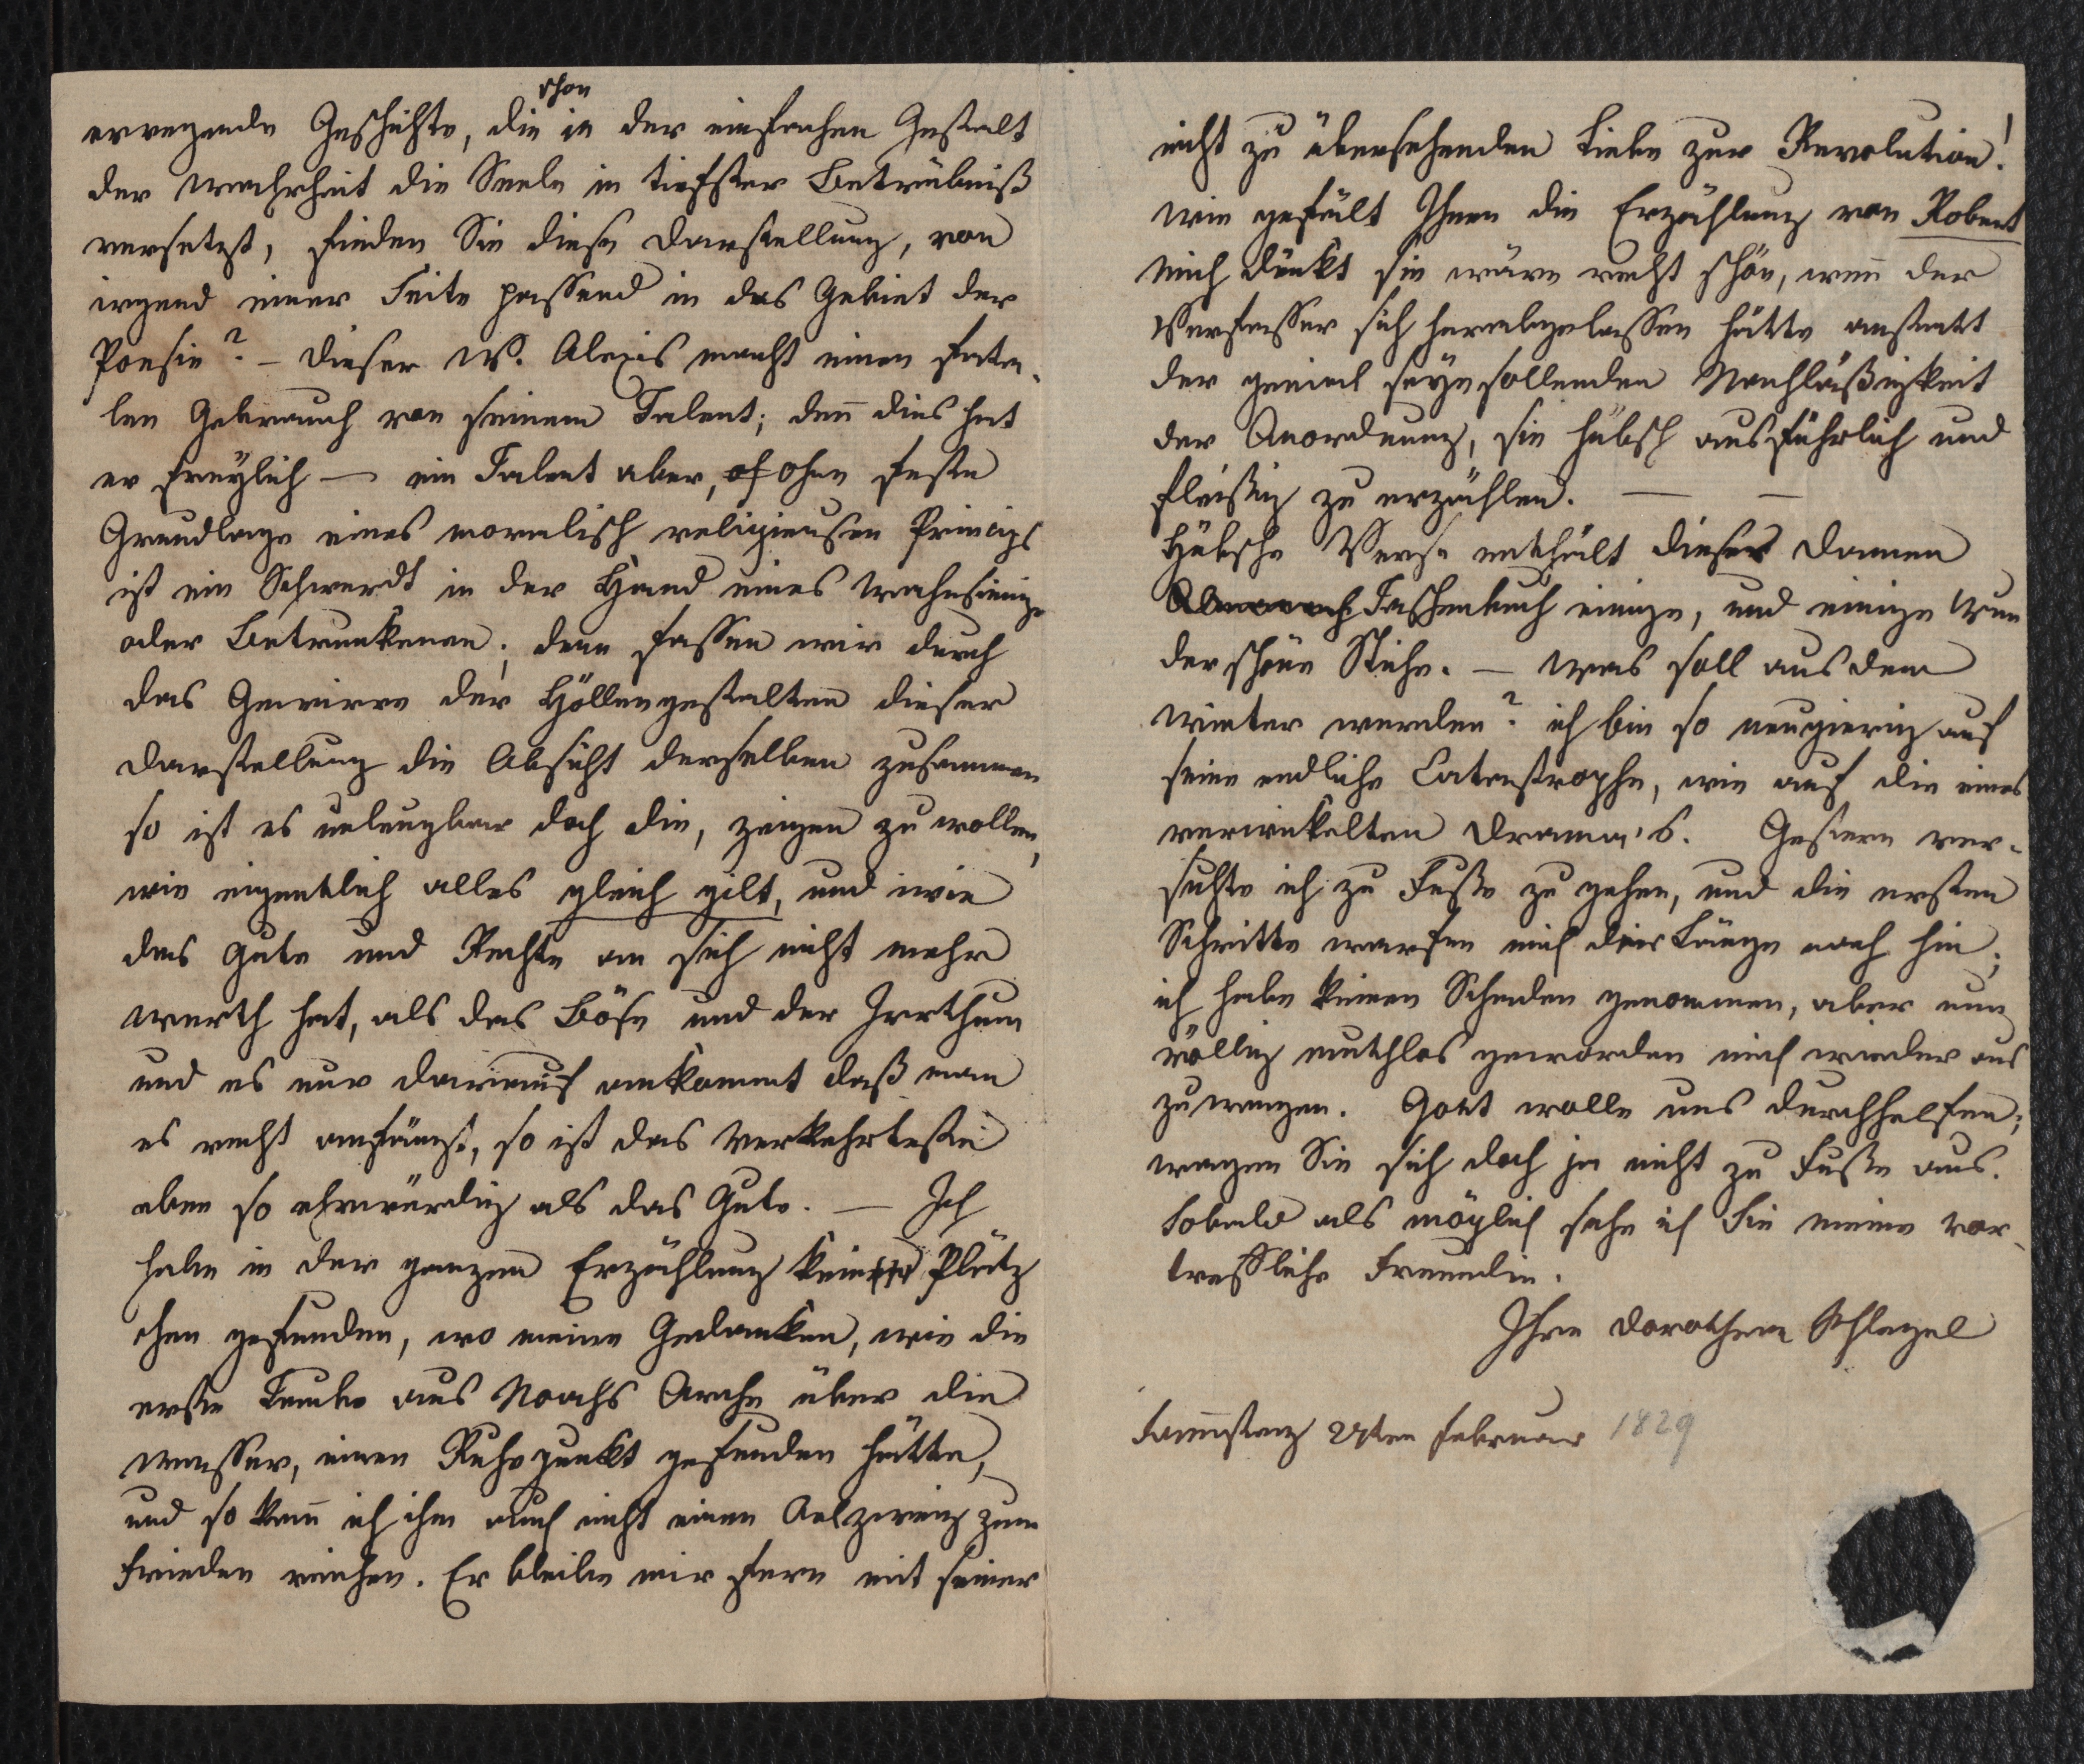 erregende Geschichte, die schon in der einfachen Gestalt
der Wahrheit die Seele in tiefster Betrübniß
versetzt, finden Sie diese Darstellung, von
irgend einer Seite passend in das Gebiet der
Poesie? – Dieser W. Alexis macht einen fata-
len Gebrauch von seinem Talent; deñ dies hat
er freylich — ein Talent aber, ohne feste
Grundlage eines moralisch religieusen Princips
ist ein Schwerdt in der Hand eines Wahnsinnige
oder Betrunkenen; denn fassen wir durch
das Gewirre der Höllengestalten dieser
Darstellung die Absicht derselben zusammen
so ist es unleugbar doch die, zeigen zu wollen,
wie eigentlich alles gleich gilt, und wie
das Gute und Rechte an sich nicht mehr
werth hat, als das Böse und der Irrthum
und es nur darauf ankommt daß man
es recht anfängt, so ist das Verkehrteste
eben so ehrwürdig als das Gute. — Ich
habe in der ganzen Erzählung kein Plätz
chen gefunden, wo meine Gedanken, wie die
erste Taube aus Noachs Arche über die
Wasser, einen Ruhepunkt gefunden hätte,
und so kañ ich ihm auch nicht einen Oelzweig zum
Frieden reichen. Er bleibe mir fern mit seiner
nicht zu übersehenden Liebe zur Revolution!
Wie gefält Ihnen die Erzählung von Robert
mich dünkt sie wäre recht schön, weñ der
Verfasser sich herabgelassen hätte anstatt
der genial seyn sollenden Nachläßigkeit
der Anordnung, sie hübsch ausführlich und
fleißig zu erzählen. — —
Hübsche Verse enthält dieses Damen
Almanach Taschenbuch einige, und einige Wun
der schöne Stiche. — Was soll aus dem
Winter werden? ich bin so neugierig auf
seine endliche Catastrophe, wie auf die eines
verwickelten Drama's. Gestern ver-
suchte ich zu Fuße zu gehen, und die ersten
Schritte warfen mich der Länge nach hin;
ich habe keinen Schaden genommen, aber nun
völlig muthlos geworden mich wieder aus
zuwagen. Gott wolle uns durchhelfen;
wagen Sie sich doch ja nicht zu Fuße aus.
Sobald als möglich sehe ich Sie meine vor-
treffliche Freundin.
Ihre Dorothea Schlegel
Dienstag 24ten Februar 1829